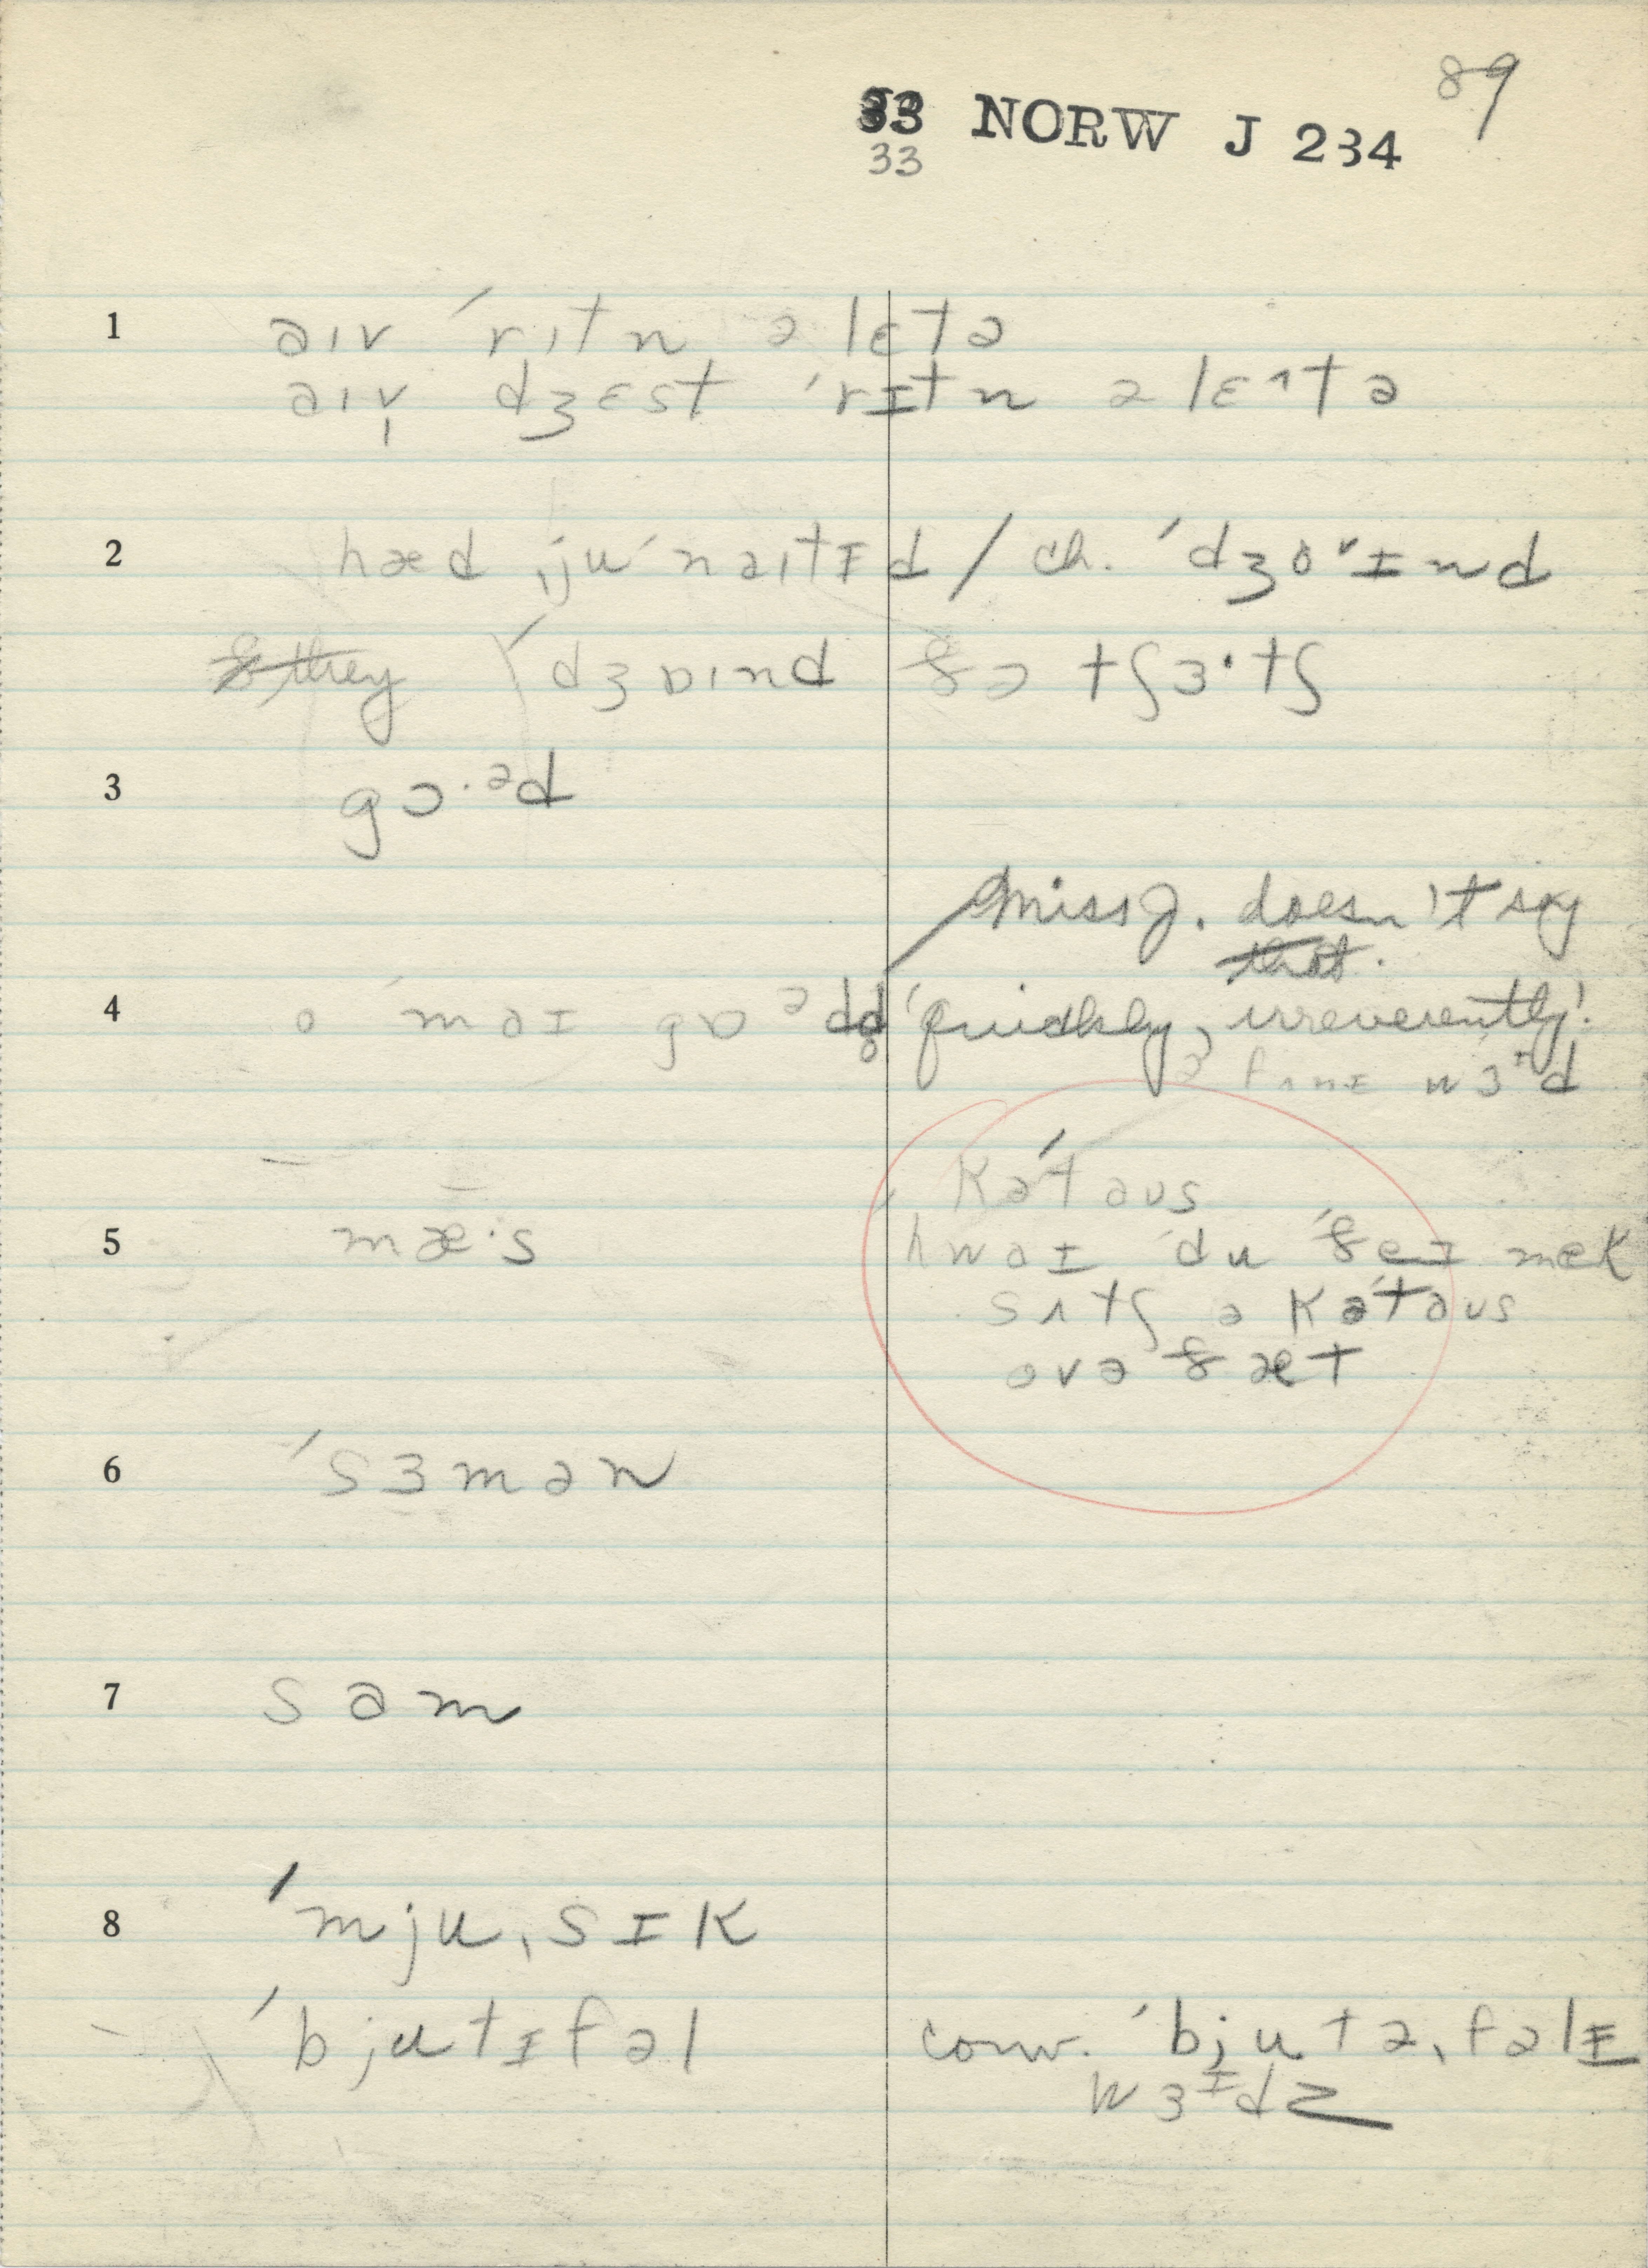 33 NORW J 234 89
33
1 aɪv ˈrɪtn ə lɛtə
aɪv dʒɛst ˈrɪtn ə lɛ^tə
2 hæd ˌjuˈnaɪtɪd / ch. ˈdʒoᵛɪnd
ðey ˈdʒɒɪnd ðə tʃɜ·tʃ
3 gɔ·ᵊd
Miss J. doesn't say
that.
4 o ˈmaɪ gɒᵊd quickly, irreverently!
ə fʌnɪ wɜᶦd
kəˈtaus
5 mæ·s hwaɪ du ðeɪ mek
sʌtʃ ə kəˈtaus
ovə ðæt
6 ˈsɜmən
7 sam
8 ˈmjuˌsɪk
ˈbjutɪfəl conv. ˈbjutəˌfəlɪ
wɜᶦdz